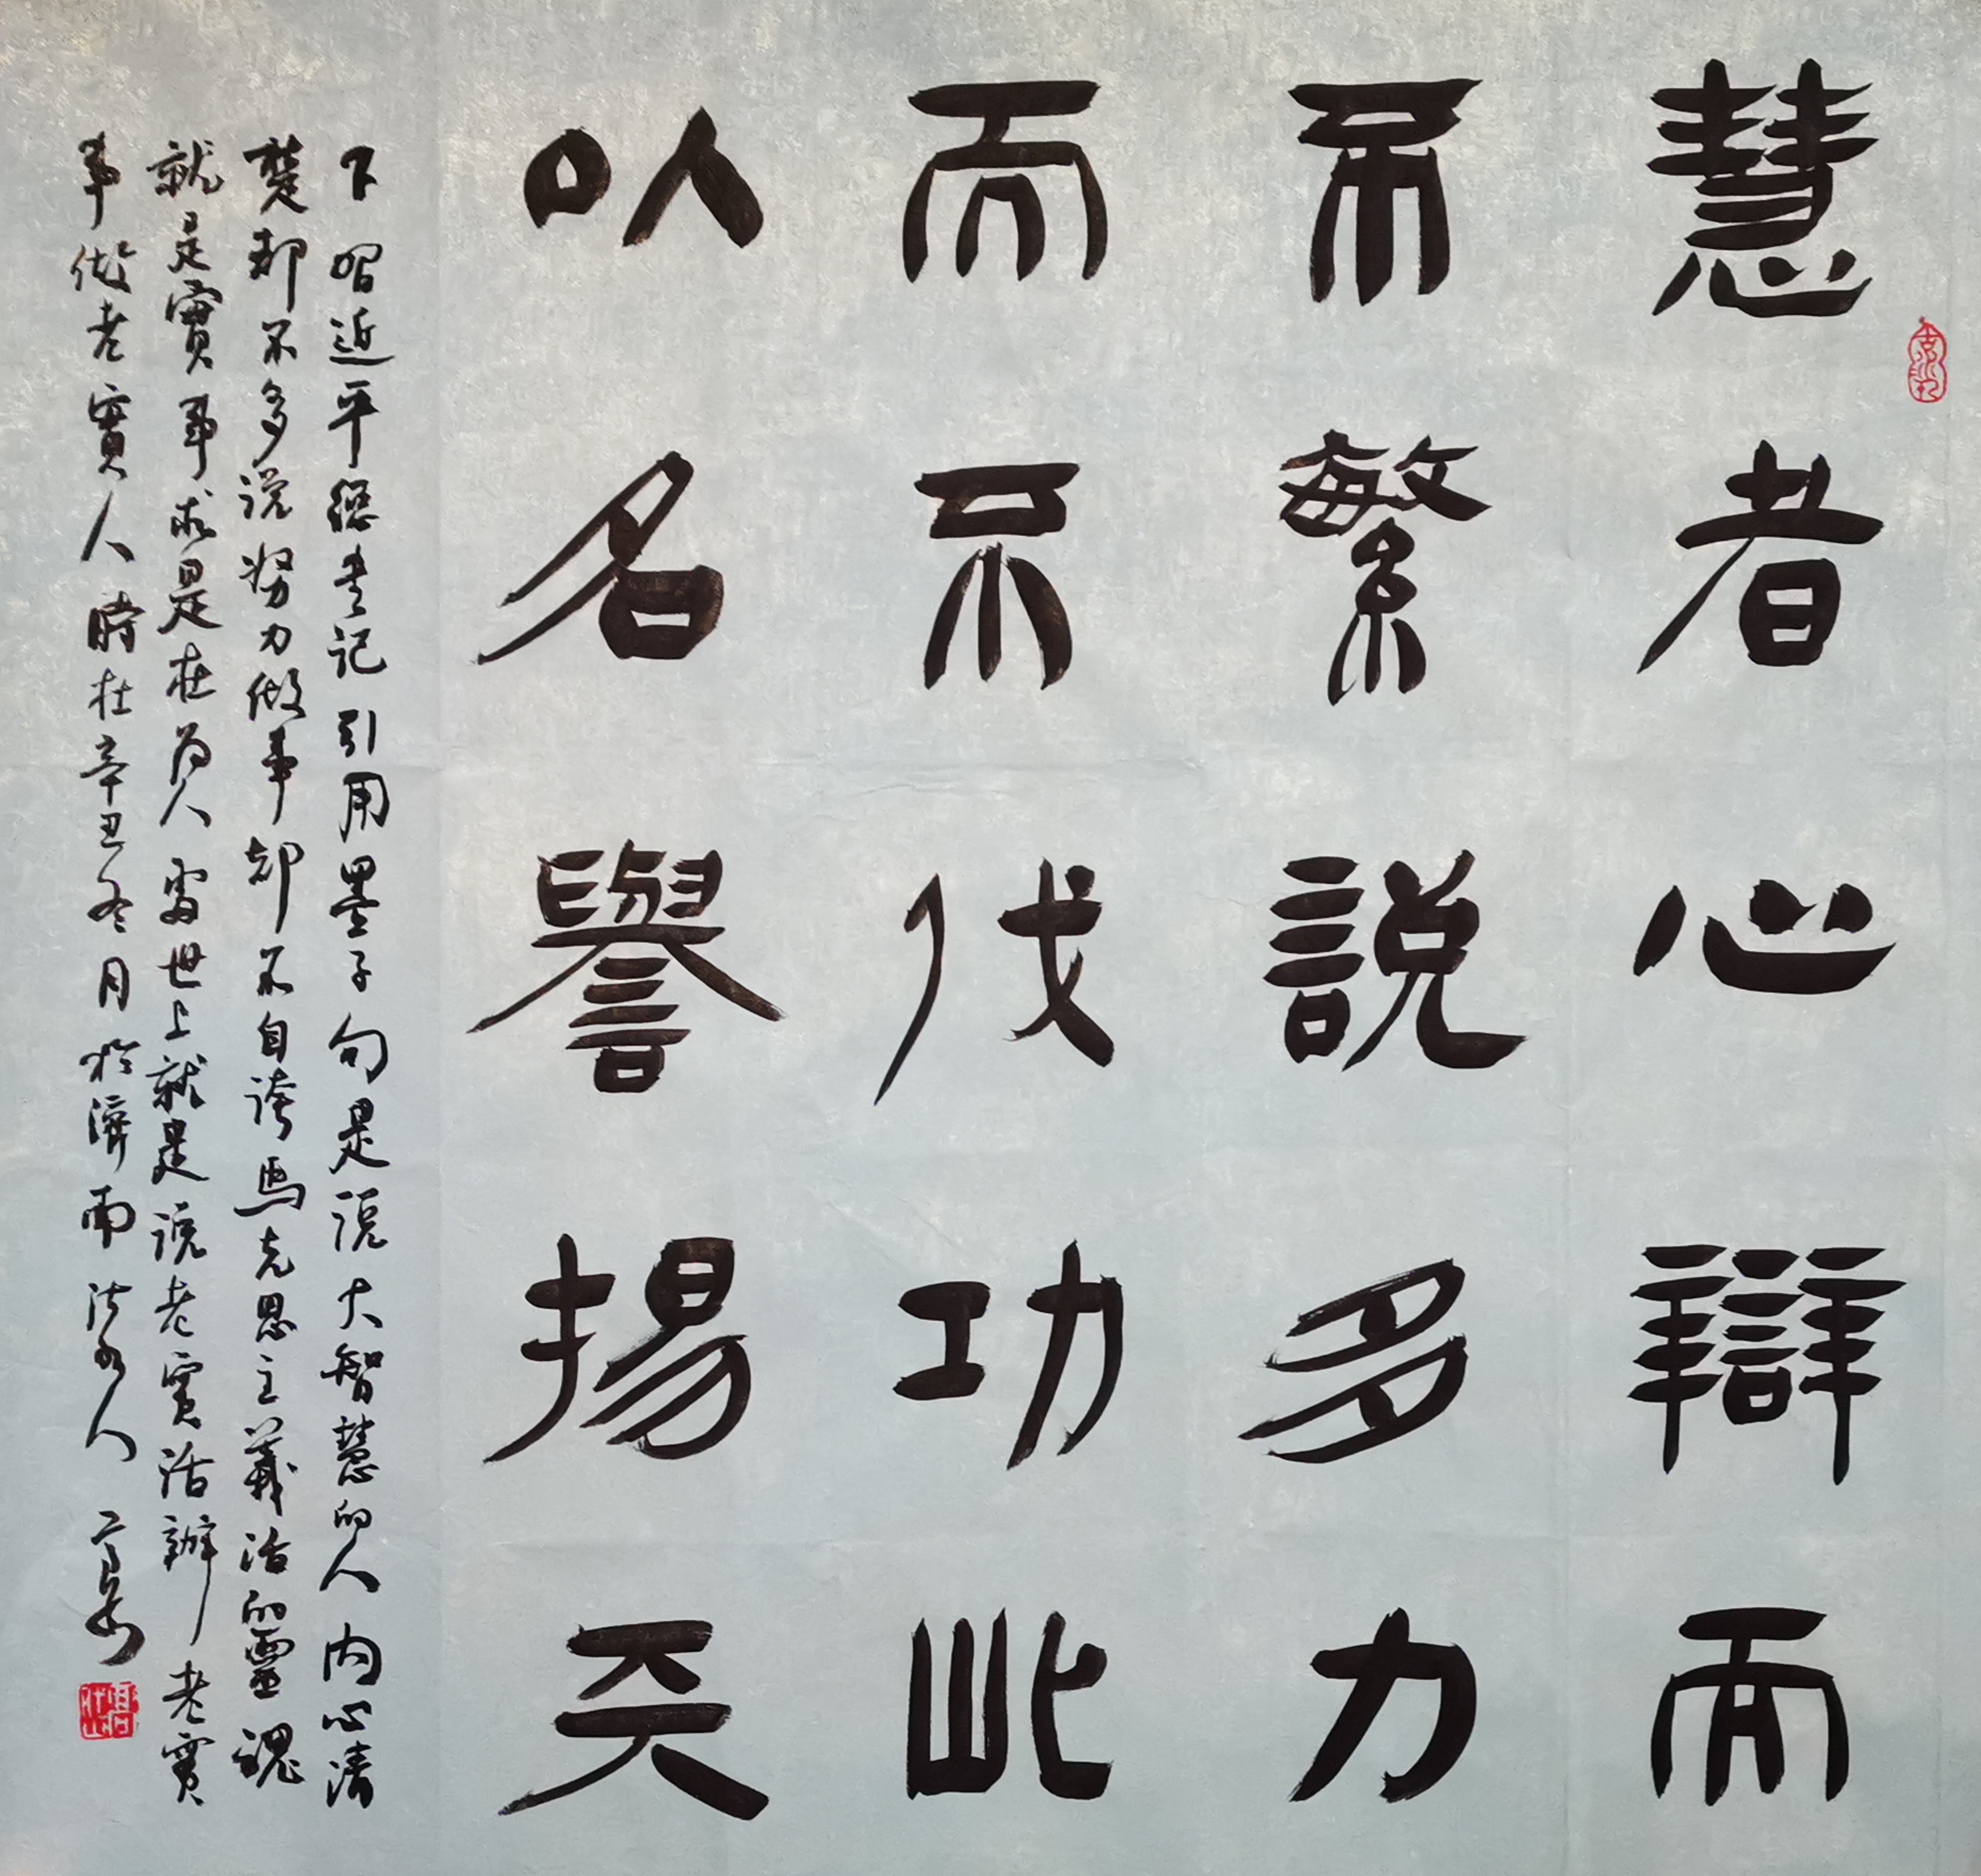 慧者心辯而
不繁說多力
而不伐功此
以名譽揚天
下 習近平總書记引用墨子句是說大智慧的人内心清
楚却不多说努力做事却不自誇馬克思主義活的靈魂
就是實事求是在為人處世上就是說老實话辦老實
事做老實人時在辛丑冬月於濟南